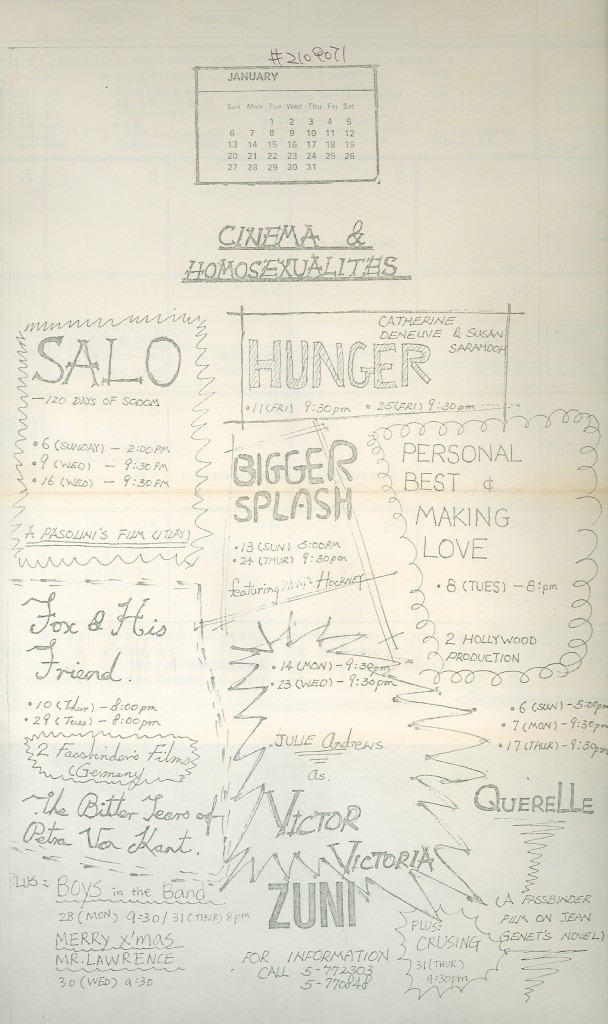 #2109071
JANUARY
Sun Mon Tue Wed Thu Fri Sat
1 2 3 4 5
6 7 8 9 10 11 12
13 14 15 16 17 18 19
20 21 22 23 24 25 26
27 28 29 30 31
CINEMA &
HOMOSEXUALITES
SALO
—120 DAYS OF SODOM
• 6 (SUNDAY) — 2:00PM
• 9 (WED) — 9:30PM
• 16 (WED) — 9:30PM
A PASOLINI'S FILM (ITLAY)
CATHERINE
DENEUVE & SUSAN
SARANDON
HUNGER
• 11 (FRI) 9:30pm • 25 (FRI) 9:30pm
BIGGER
SPLASH
• 13 (SUN) 5:00PM
• 24 (THUR) 9:30pm
featuring DAVID HOCKNEY
PERSONAL
BEST &
MAKING
LOVE
• 8 (TUES) — 8:pm
2 HOLLYWOOD
PRODUCTION
Fox & His
Friend.
• 10 (Thur) — 8:00pm
• 29 (Tues) — 8:00pm
2 Fassbinder's Films
(Germany)
The Bitter Tears of
Petra Von Kant.
• 14 (MON) — 9:30pm
• 23 (WED) — 9:30pm
JULIE Andrews
as.
VICTOR
VICTORIA
• 6 (SUN) — 5:00pm
• 7 (MON) — 9:30pm
• 17 (THUR) — 9:30pm
QUERELLE
(A FASSBINDER
FILM ON JEAN
GENET'S NOVEL)
PLUS:
BOYS in the Band
28 (MON) 9:30/31 (THUR) 8pm
MERRY X'mas
MR. LAWRENCE
30 (WED) 9:30
ZUNI
FOR INFORMATION
CALL 5-772303
5-770848
PLUS:
CRUSING
31 (THUR)
9:30pm